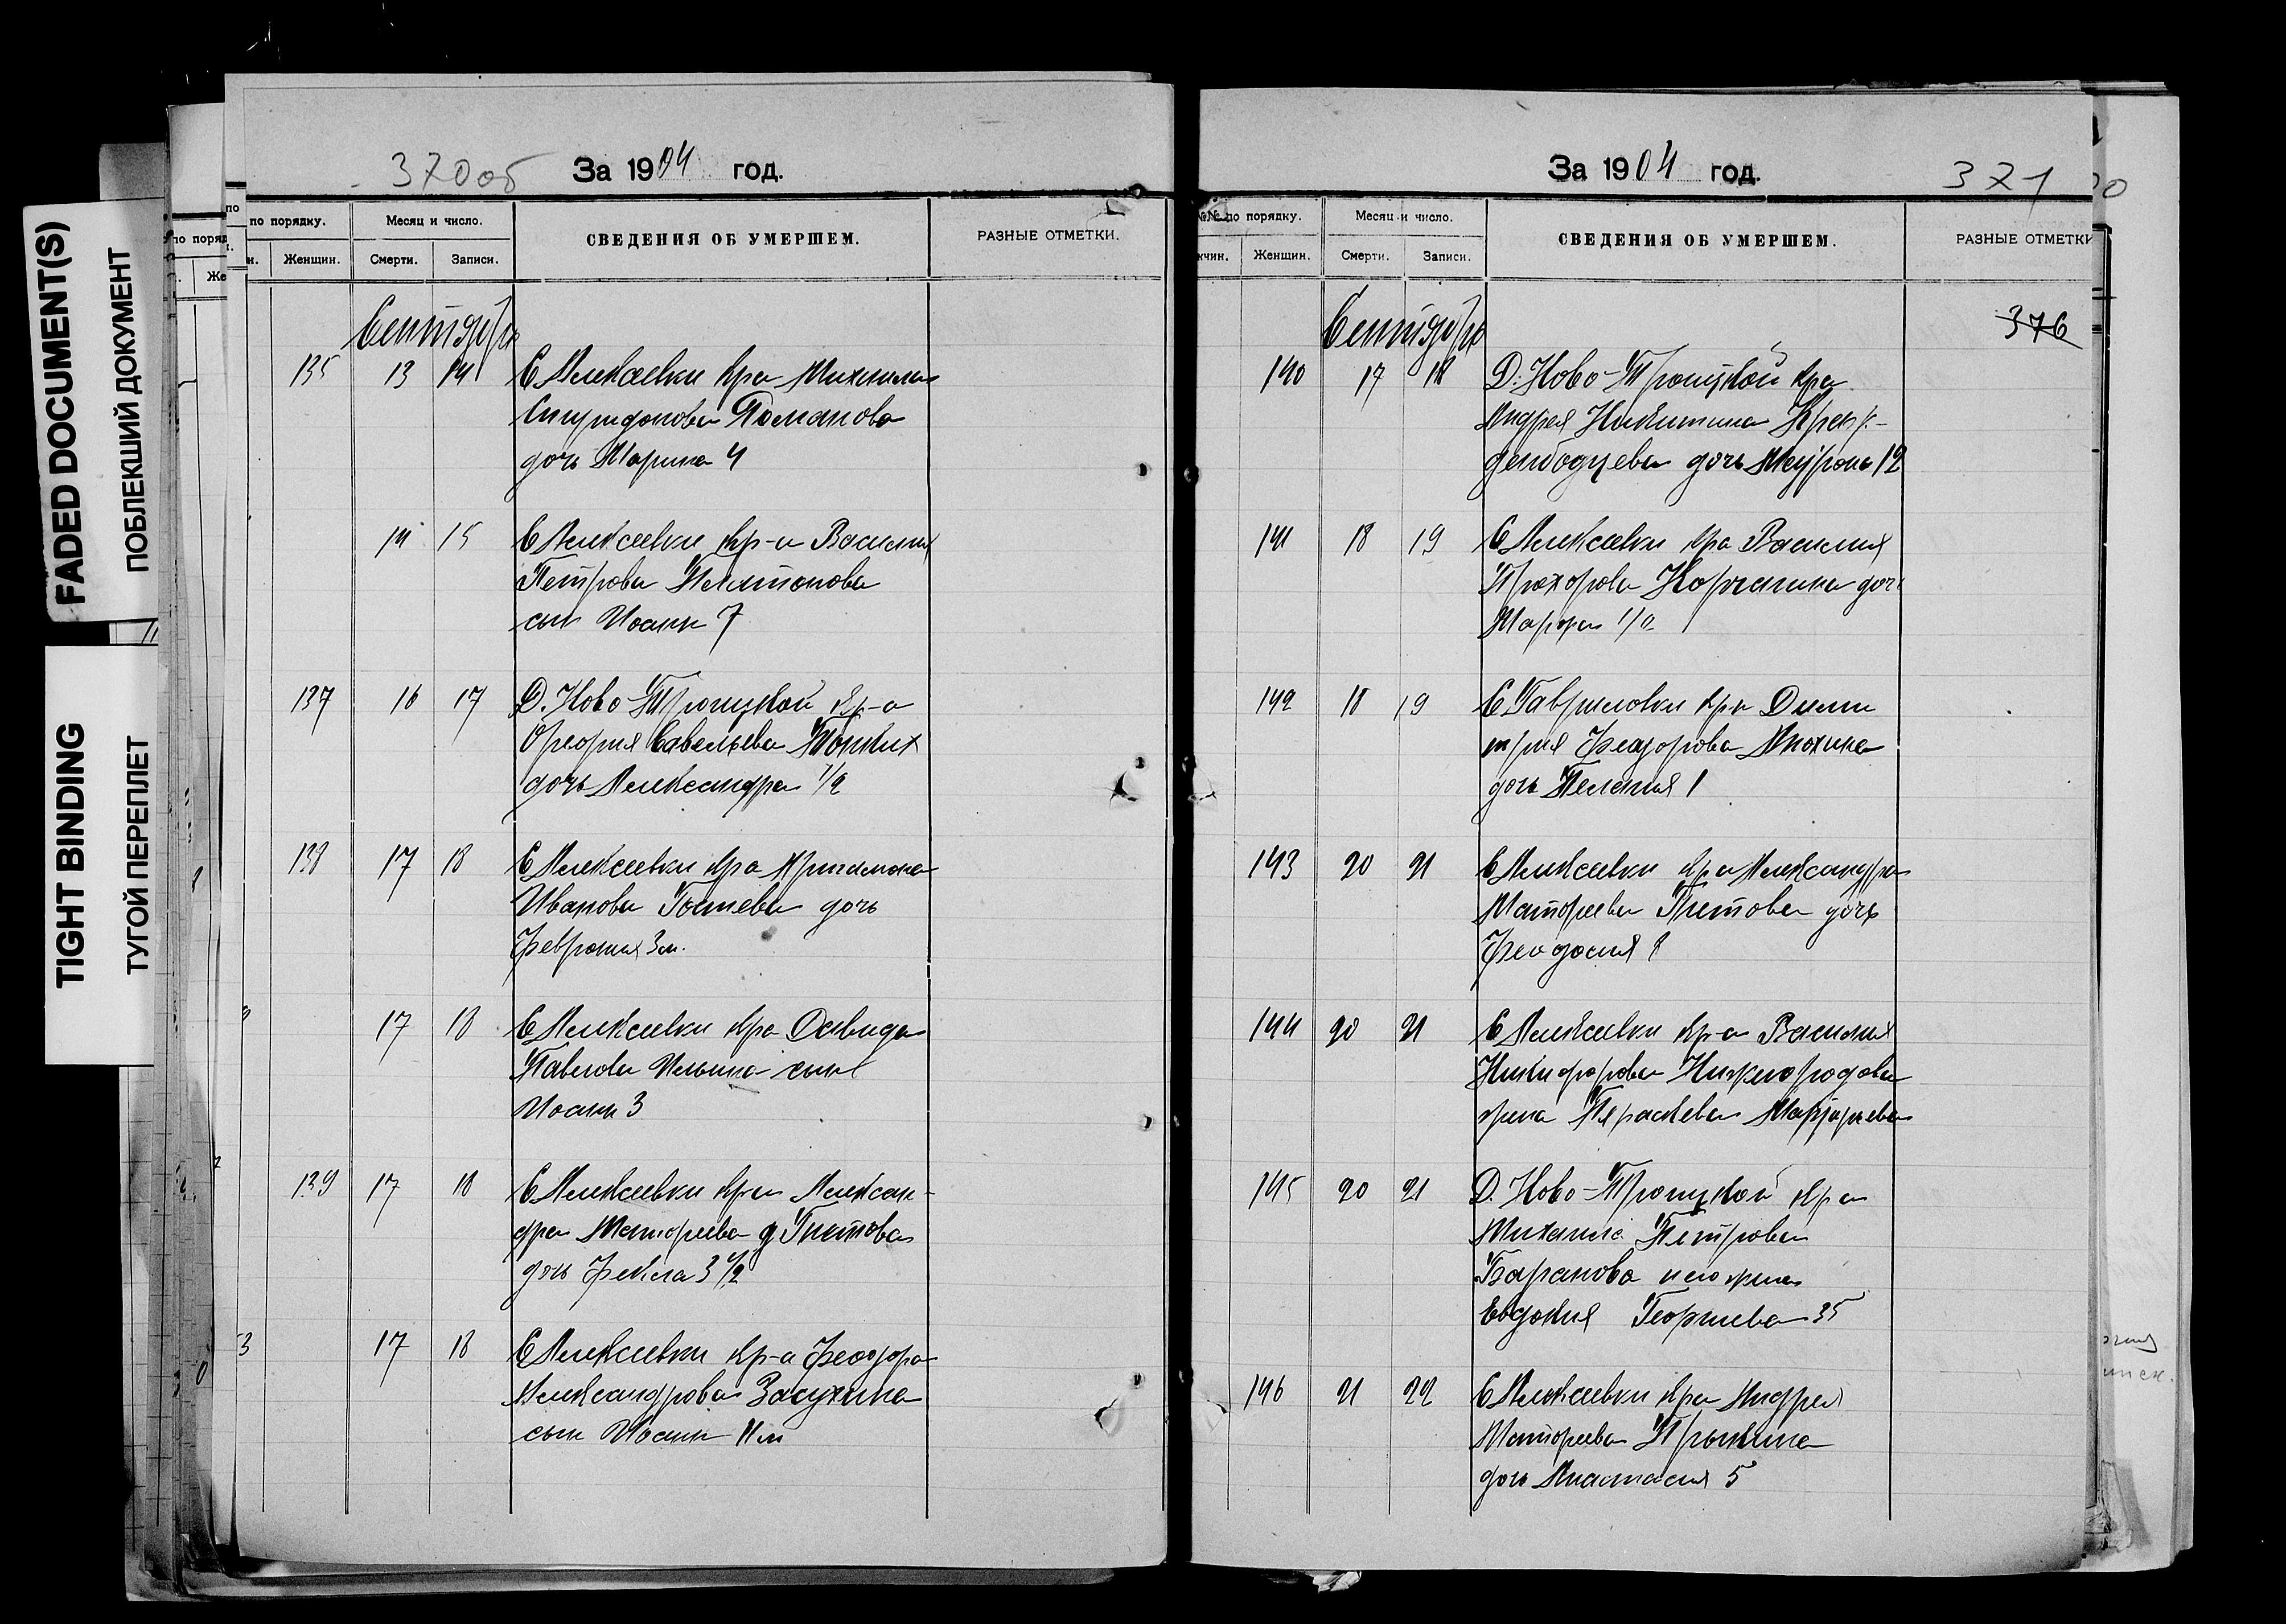 FADED DOCUMENT(S)
ПОБЛЕКШИЙ ДОКУМЕНТ
TIGHT BINDING
ТУГОЙ ПЕРЕПЛЕТ
370об
За 1904 год.
по порядку.
Месяц и число.
СВЕДЕНИЯ ОБ УМЕРШЕМ.
РАЗНЫЕ ОТМЕТКИ.
Женщин.
Смерти.
Записи.
Сентябрь
135 13 14 С Алексеевки кр-а Михаила
Спиридонова Романова
дочь Марина 4
14 15 С Алексеевки кр-а Василия
Петрова
сын Иоанн 7
137 16 17 Д. Ново-Троицкой кр-а
Григория Савельева Тонких
дочь Александра 1/2
138 17 18 С Алексеевки кр-а
Иванова дочь
Феврония 3 м.
17 18 С Алексеевки кр-а Давида
Павлова Ильина сын
Иоанн 3
139 17 18 С Алексеевки кр-а Алексан-
дра Матфеева Глотова
дочь Фекла 3 1/2
3 17 18 С Алексеевки кр-а Феодора
Александрова Засухина
сын Иоанн 11 м
За 1904 год.
371
№№ по порядку.
Месяц и число.
СВЕДЕНИЯ ОБ УМЕРШЕМ.
РАЗНЫЕ ОТМЕТКИ
жчин.
Женщин.
Смерти.
Записи.
376
Сентябрь
140 17 18 Д. Ново-Троицкой кр-а
Андрея Никитина
дочь 12
141 18 19 С Алексеевки кр-а Василия
Прохорова Корчагина дочь
Марфа
142 18 19 С Гавриловки кр-а Дими
трия Феодорова Анохина
дочь Пелагия 1
143 20 21 С Алексеевки кр-а Александра
Матфеева Глотова дочь
Феодосия 8
144 20 21 С Алексеевки кр-а Василия
Никифорова Нижегородова
жена Параскева
145 20 21 Д. Ново-Троицкой кр-а
Михаила Петрова
Баранова жена
Евдокия Георгиева 35
146 21 22 С Алексеевки кр-а Андрея
Матфеева
дочь Анастасия 5